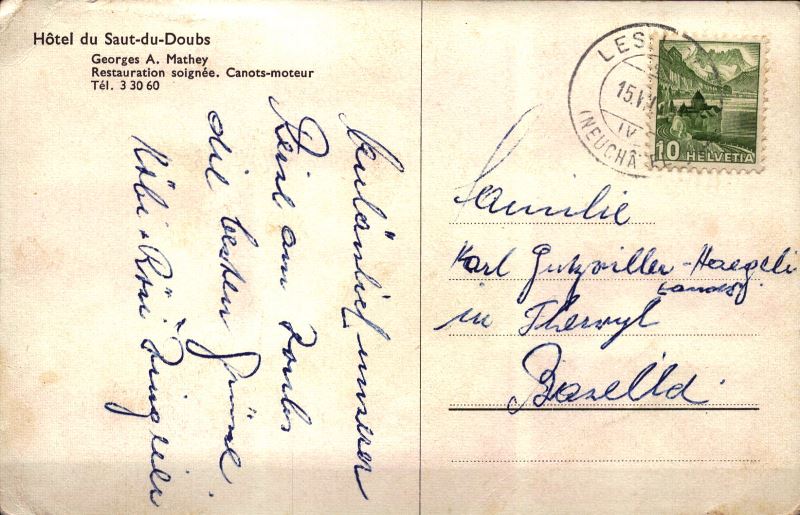 Hôtel du Saut-du-Doubs
Georges A. Mathey
Restauration soignée. Canots-moteur
Tél. 3 30 60
Anlässlich unserer
Reise am Doubs
die besten Grüsse.
Köbi + Rösi
LES
15.VI
IV
(NEUCHÂ
10 HELVETIA
Familie
Karl Gutzwiller-Haegeli
Landw.
in Therwyl
Baselld